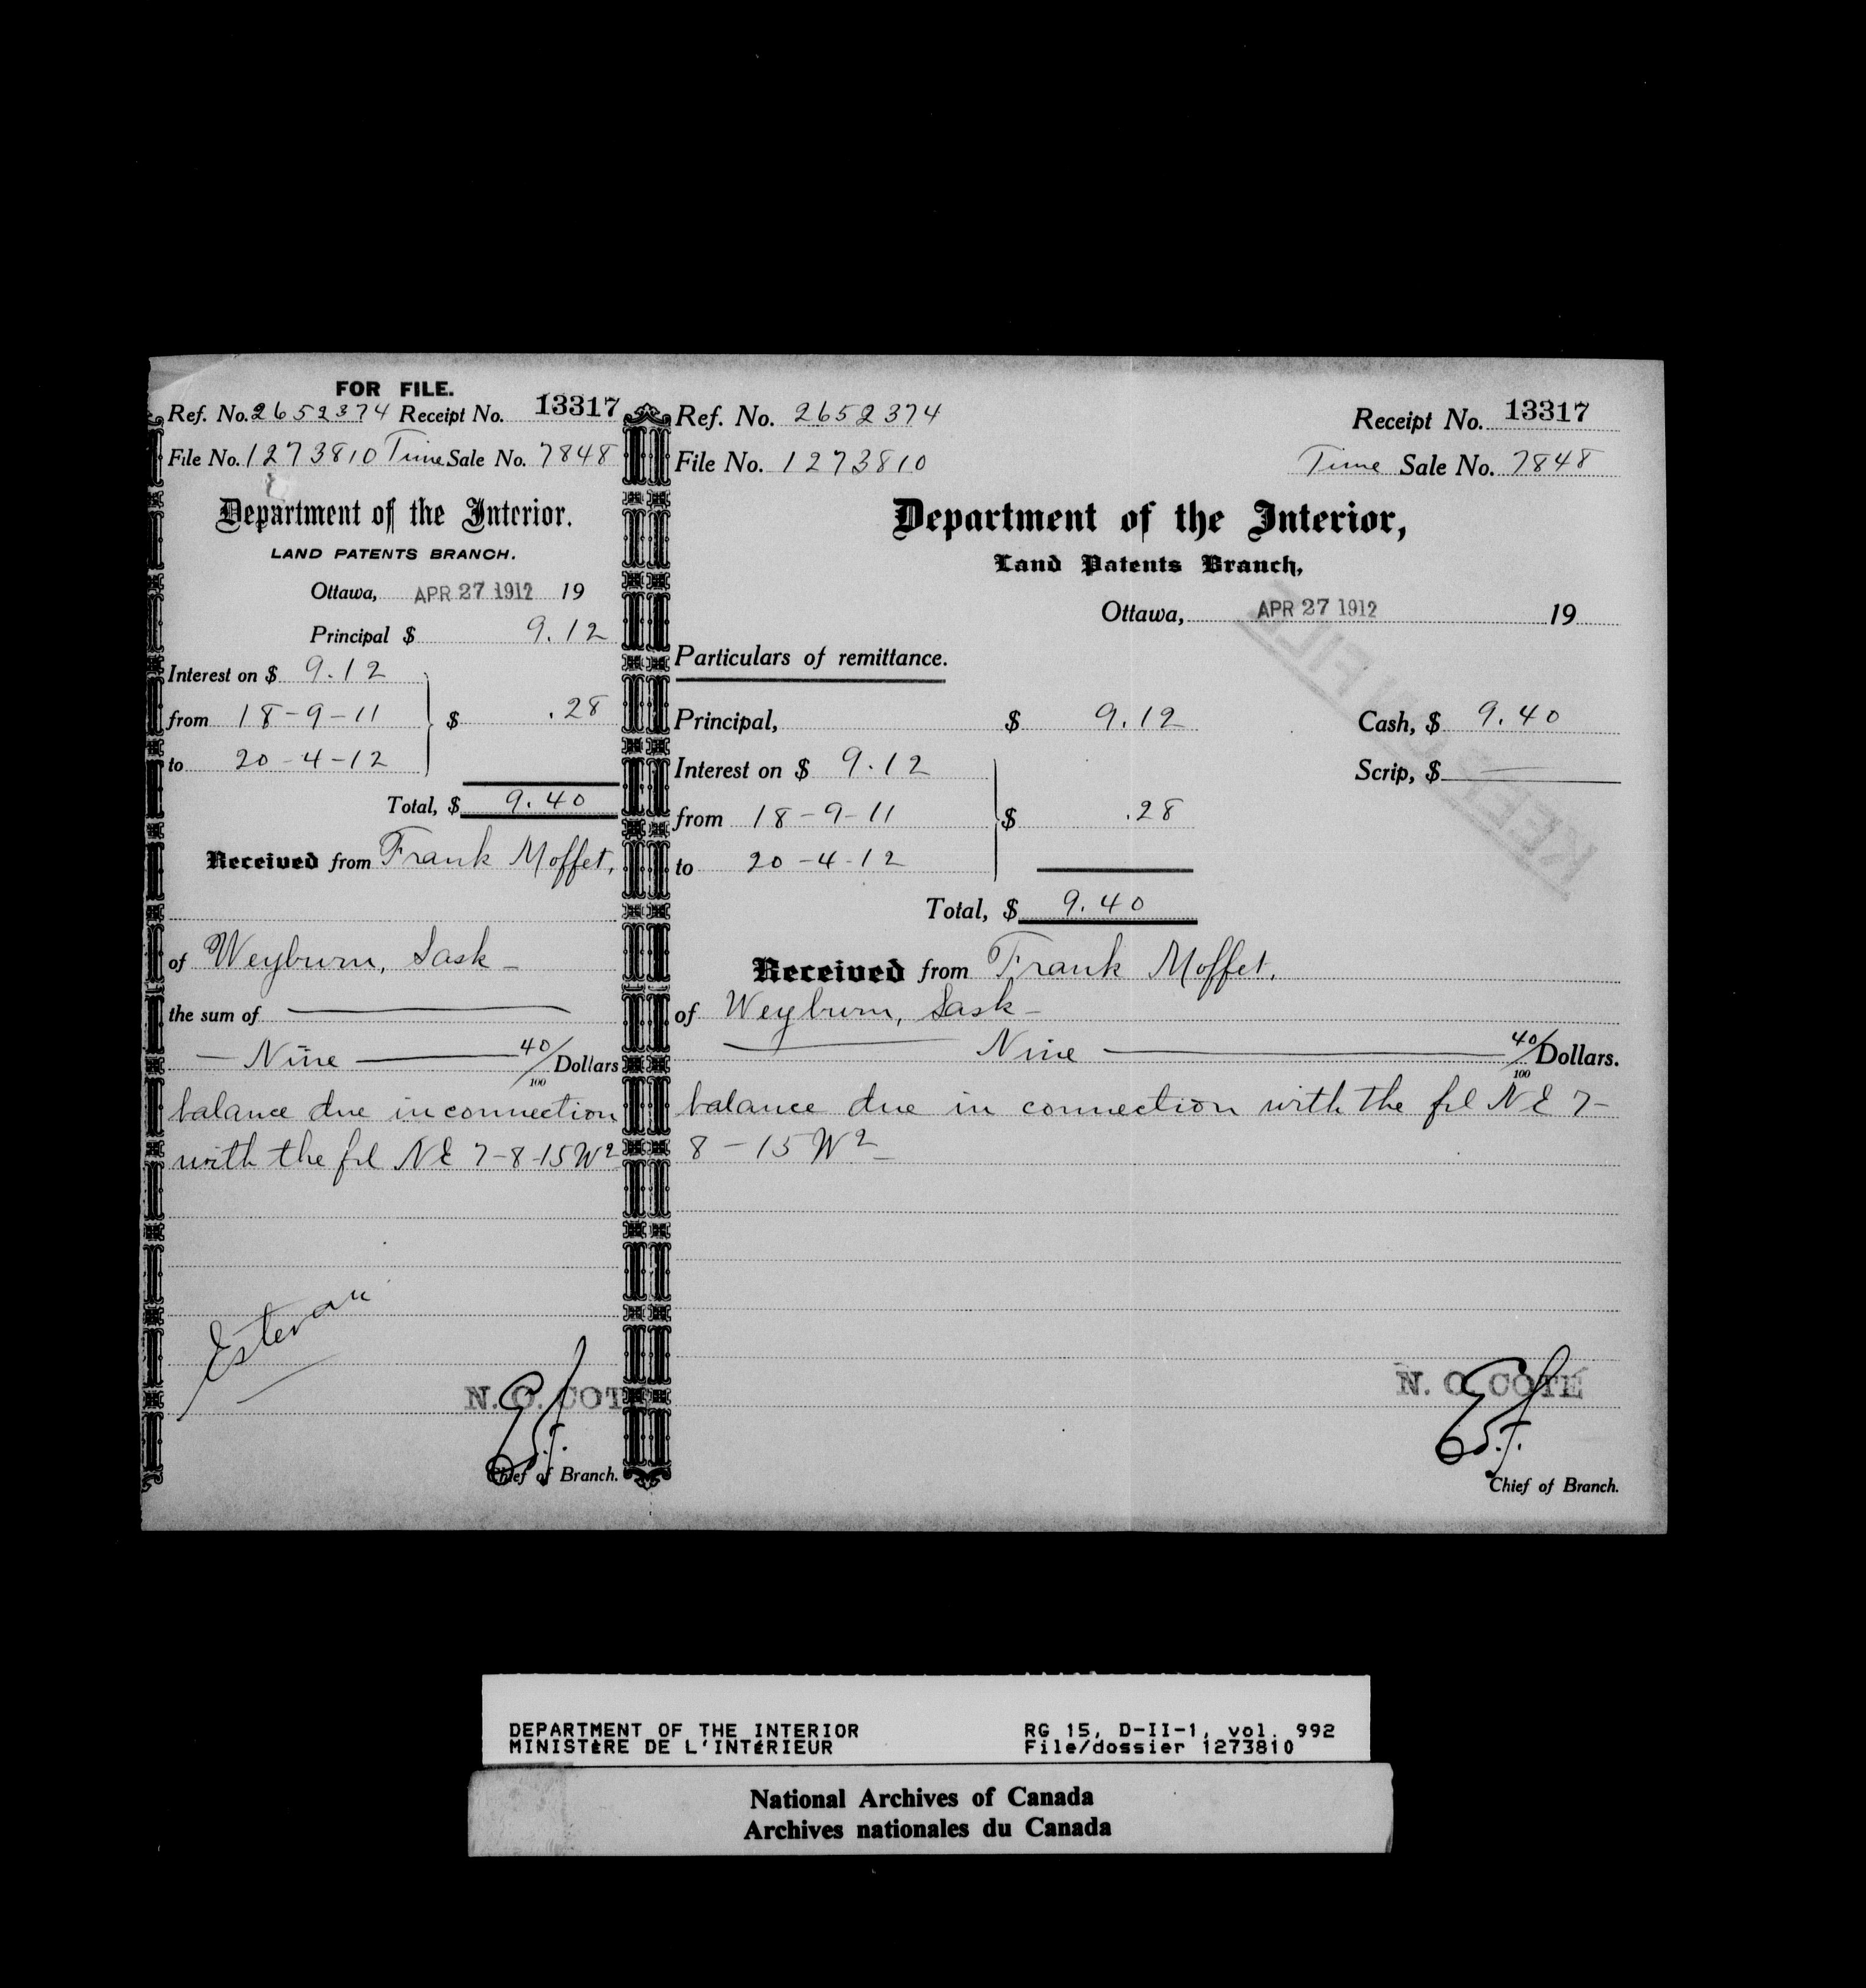 FOR FILE.
Ref. No. 2652374 Receipt No. 13317
File No. 1273810 Time Sale No. 7848
Department of the Interior.
LAND PATENTS BRANCH.
Ottawa, APR 27 1912 19
Principal $ 9.12
Interest on $ 9.12
from 18-9-11 $ .28
to 20-4-12
Total, $ 9.40
Received from Frank Moffet,
of Weyburn, Sask-
the sum of
— Nine — 40/100 Dollars
balance due in connection
with the frl NE 7-8-15 W2
Estevan
N. O. COTÉ
Chief of Branch.
Ref. No. 2652374 Receipt No. 13317
File No. 1273810 Time Sale No. 7848
Department of the Interior,
Land Patents Branch,
Ottawa, APR 27 1912 19
KEEP ON FILE
Particulars of remittance.
Principal, $ 9.12 Cash, $ 9.40
Interest on $ 9.12 Scrip, $ —
from 18-9-11 $ .28
to 20-4-12
Total, $ 9.40
Received from Frank Moffet.
of Weyburn, Sask-
Nine — 40/100 Dollars.
balance due in connection with the frl NE 7-
8-15 W2-
N. O. COTÉ
Chief of Branch.
DEPARTMENT OF THE INTERIOR RG 15, D-II-1, vol. 992
MINISTÈRE DE L'INTÉRIEUR File/dossier 1273810
National Archives of Canada
Archives nationales du Canada